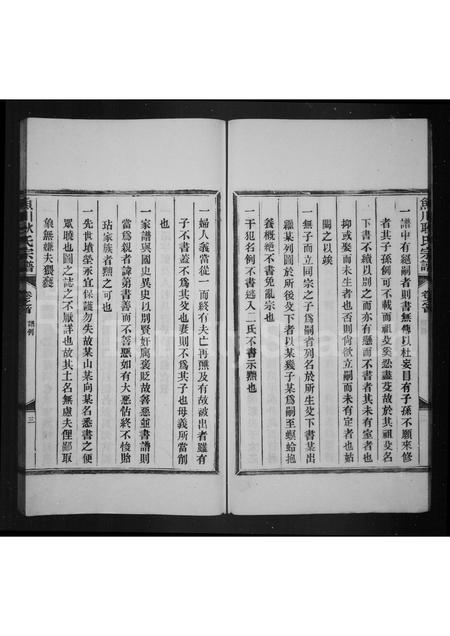 魚川耿氏宗譜
卷之首
一譜中有絕嗣者則書無傳以杜妄目有子孫不願來修
者其子孫例可不載而祖父奚忍盡芟故於其祖父名
下書不續以別之而亦有懸而不書者其未有室者也
抑或娶而未生者也否則尚欲立嗣而未有定者也姑
闕之以俟
一無子而立同宗之子爲嗣者列名於所生父下書某出
繼某列圖於所後父下者以某幾子某爲嗣至螟蛉抱
養概絕不書免亂宗也
一干犯名例不書逃入二氏不書示黜也
一婦人義當從一而終有夫亡再醮及有故被出者雖有
子不書蓋不爲其父也妻則不爲其子也母義所當削
一家譜與國史異史以別賢奸寓褒貶故善惡並書譜則
當爲親者諱第書善而不書惡如有大惡怙終不悛貽
玷家族者黜之可也
一先世墳塋亦宜保護勿失故某山某向某名悉書之便
眾曉也圖之誌之不厭詳也故其土名無慮夫俚鄙取
象無嫌夫猥褻
魚川耿氏宗譜
卷之首
譜例
三